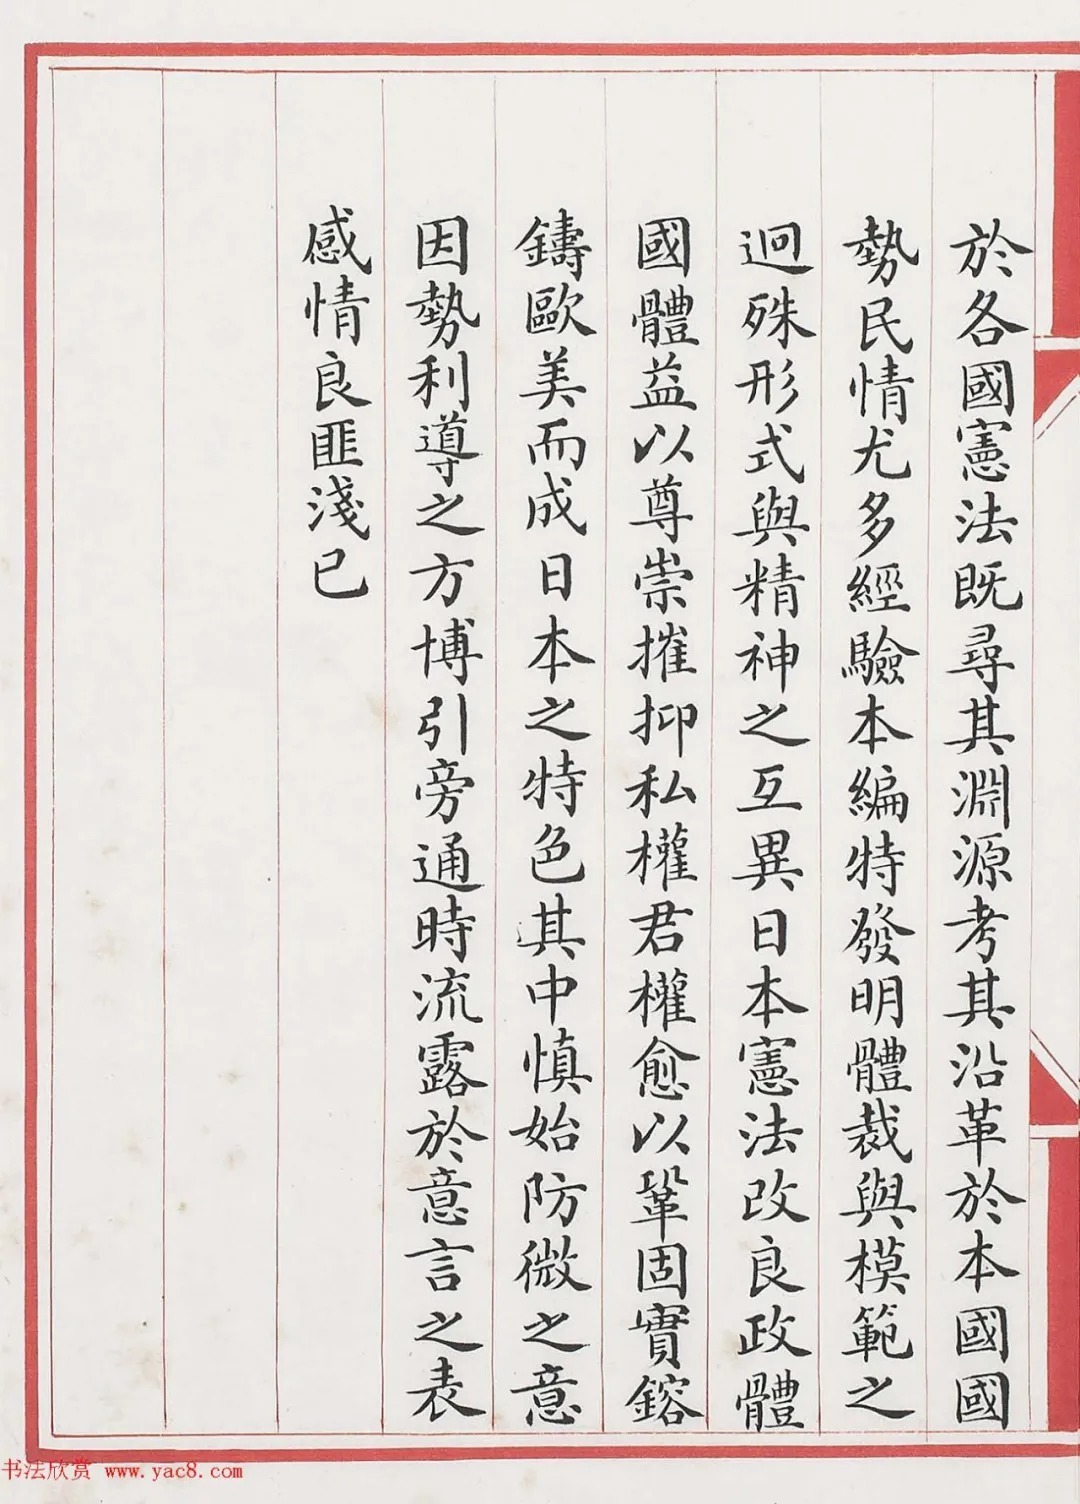 於各國憲法既尋其淵源考其沿革於本國國
勢民情尤多經驗本編特發明體裁與模範之
迥殊形式與精神之互異日本憲法改良政體
國體益以尊崇摧抑私權君權愈以鞏固實鎔
鑄歐美而成日本之特色其中慎始防微之意
因勢利導之方博引旁通時流露於意言之表
感情良匪淺已
书法欣赏 www.yac8.com